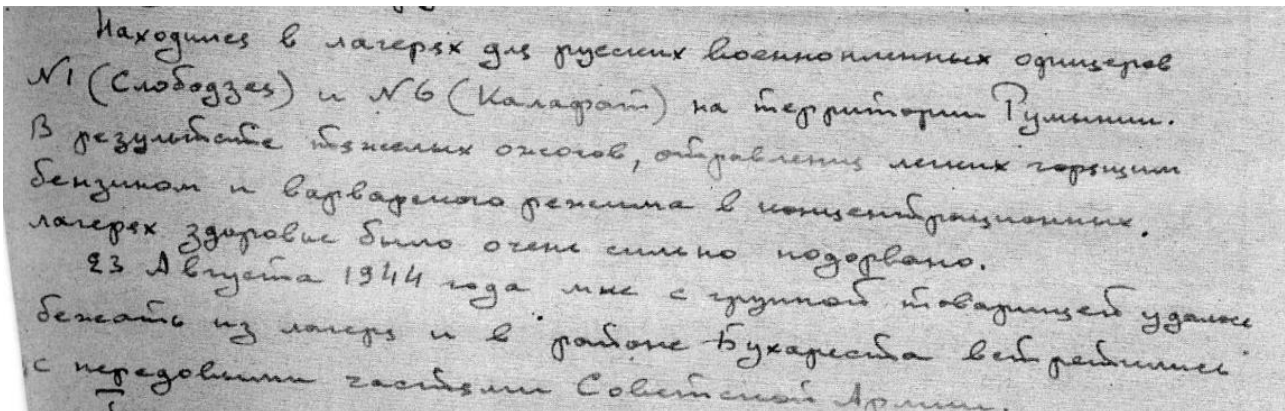 Находился в лагерях для русских военнопленных офицеров
№1 (Слободзея) и №6 (Калафат) на территории Румынии.
В результате тяжелых ожогов, отравления легких горящим
бензином и варварского режима в концентрационных
лагерях здоровье было очень сильно подорвано.
23 Августа 1944 года мне с группой товарищей удалось
бежать из лагеря и в районе Бухареста встретились
с передовыми частями Советской Армии.